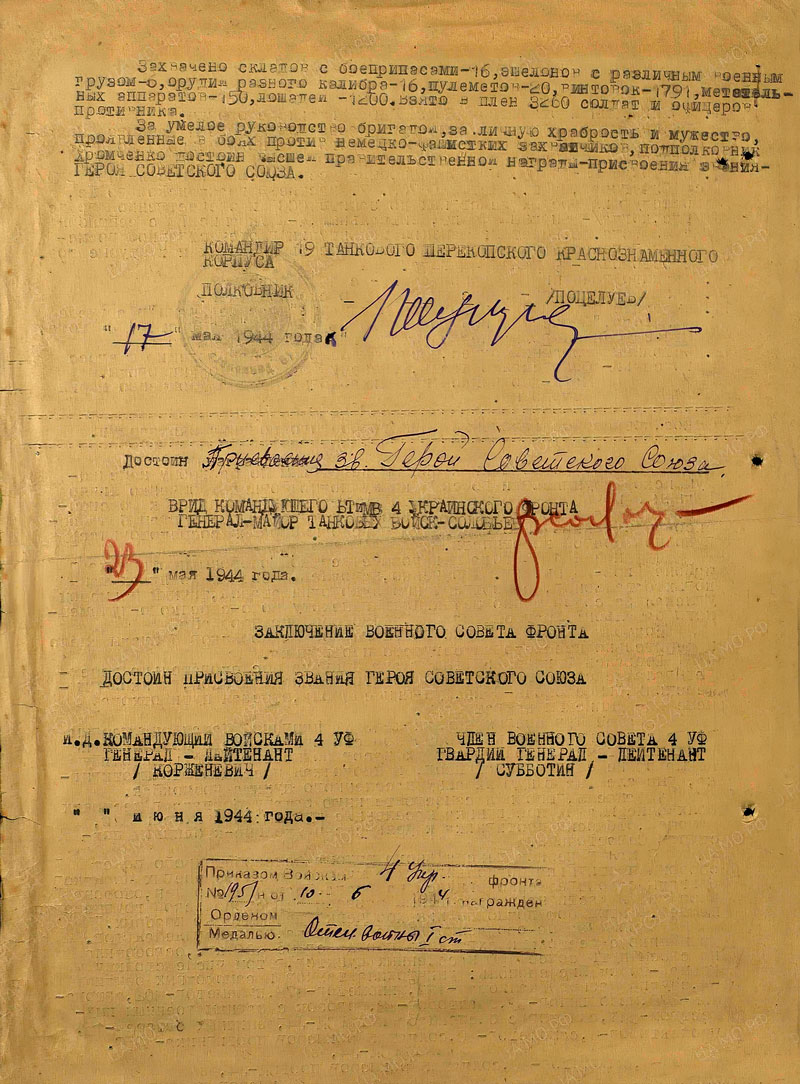 Захвачено складов с боеприпасами-16, эшелонов с различным военным
грузом-6, орудий разного калибра-16, пулеметов-20, винтовок-1791, метатель-
ных аппаратов-150, лошадей -1200. Взято в плен 3260 солдат и офицеров
противника.
За умелое руководство бригадой, за личную храбрость и мужество,
проявленные в боях против немецко-фашистких захватчиков, подполковник
Хромченко достоин высшей правительственной награды-присвоения звания-
ГЕРОЯ СОВЕТСКОГО СОЮЗА.
КОМАНДИР 19 ТАНКОВОГО ПЕРЕКОПСКОГО КРАСНОЗНАМЕННОГО
КОРПУСА
ПОЛКОВНИК - - /ПОЦЕЛУЕВ/
"17" мая 1944 года.
Достоин Присвоения зв. Герой Советского Союза
ВРИД КОМАНДУЮЩЕГО БТИМВ 4 УКРАИНСКОГО ФРОНТА
ГЕНЕРАЛ-МАЙОР ТАНКОВЫХ ВОЙСК-СОЛОВЬЕВ
"23" мая 1944 года.
ЗАКЛЮЧЕНИЕ ВОЕННОГО СОВЕТА ФРОНТА
ДОСТОИН ПРИСВОЕНИЯ ЗВАНИЯ ГЕРОЯ СОВЕТСКОГО СОЮЗА
И.Д.КОМАНДУЮЩИЙ ВОЙСКАМИ 4 УФ
ГЕНЕРАЛ - ЛЕЙТЕНАНТ
/ КОРЖЕНЕВИЧ /
ЧЛЕН ВОЕННОГО СОВЕТА 4 УФ
ГВАРДИИ ГЕНЕРАЛ - ЛЕЙТЕНАНТ
/ СУББОТИН /
" " июня 1944 года.-
Приказом Войскам 4 Укр. фронта
№195/н от 10 6 1944 награжден
Орденом
Медалью. Отеч. войны I ст